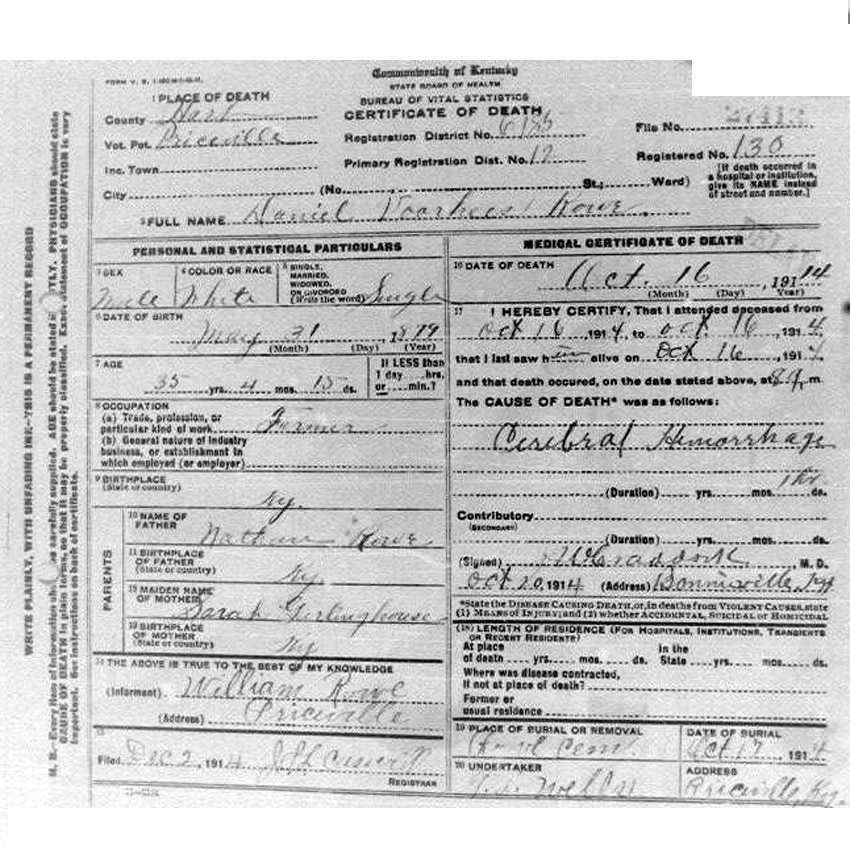 Commonwealth of Kentucky
STATE BOARD OF HEALTH
BUREAU OF VITAL STATISTICS
CERTIFICATE OF DEATH
1 PLACE OF DEATH
County Hart
Vot. Pct. Priceville
Inc. Town
City (No. St.; Ward)
Registration District No. 6135
Primary Registration Dist. No. 12
File No. 27412
Registered No. 130
[If death occurred in a hospital or institution, give its NAME instead of street and number.]
2 FULL NAME Daniel Voorhees Rowe
PERSONAL AND STATISTICAL PARTICULARS
3 SEX Male
4 COLOR OR RACE White
5 SINGLE, MARRIED, WIDOWED, OR DIVORCED (Write the word) Single
6 DATE OF BIRTH
May 31, 1879
(Month) (Day) (Year)
7 AGE
35 yrs. 4 mos. 15 ds.
If LESS than 1 day hrs. or min.?
8 OCCUPATION
(a) Trade, profession, or particular kind of work Farmer
(b) General nature of industry business, or establishment in which employed (or employer)
9 BIRTHPLACE
(State or country) Ky.
PARENTS
10 NAME OF FATHER Nathan Rowe
11 BIRTHPLACE OF FATHER (State or country) Ky.
12 MAIDEN NAME OF MOTHER Sarah Furlinghouse
13 BIRTHPLACE OF MOTHER (State or country) Ky
14 THE ABOVE IS TRUE TO THE BEST OF MY KNOWLEDGE
(Informant) William Rowe
(Address) Priceville
15
Filed Dec 2, 1914
REGISTRAR
MEDICAL CERTIFICATE OF DEATH
16 DATE OF DEATH
Oct. 16, 1914
(Month) (Day) Year)
17 I HEREBY CERTIFY, That I attended deceased from
Oct 16, 1914, to Oct. 16, 1914.
that I last saw him alive on Oct 16, 1914
and that death occured, on the date stated above, at 8 m
The CAUSE OF DEATH* was as follows:
Cerebral Hemorrhage
1 hr
(Duration) yrs. mos. ds.
Contributory
(SECONDARY)
(Duration) yrs. mos. ds.
(Signed) Craddock, M. D.
Oct 20, 1914 (Address) Bonnieville, Ky
*State the DISEASE CAUSING DEATH, or, in deaths from VIOLENT CAUSES, state
(1) MEANS OF INJURY; and (2) whether ACCIDENTAL, SUICIDAL or HOMICIDAL
(18) LENGTH OF RESIDENCE (FOR HOSPITALS, INSTITUTIONS, TRANSIENTS OR RECENT RESIDENTS)
At place of death yrs. mos. ds. In the State yrs. mos. ds.
Where was disease contracted, if not at place of death?
Former or usual residence
19 PLACE OF BURIAL OR REMOVAL
Cem.
DATE OF BURIAL
Oct 17, 1914
20 UNDERTAKER
ADDRESS
Priceville, Ky.
WRITE PLAINLY, WITH UNFADING INK—THIS IS A PERMANENT RECORD
N. B.—Every item of information should be carefully supplied. AGE should be stated EXACTLY. PHYSICIANS should state
CAUSE OF DEATH in plain terms, so that it may be properly classified. Exact statement of OCCUPATION is very
important. See instructions on back of certificate.